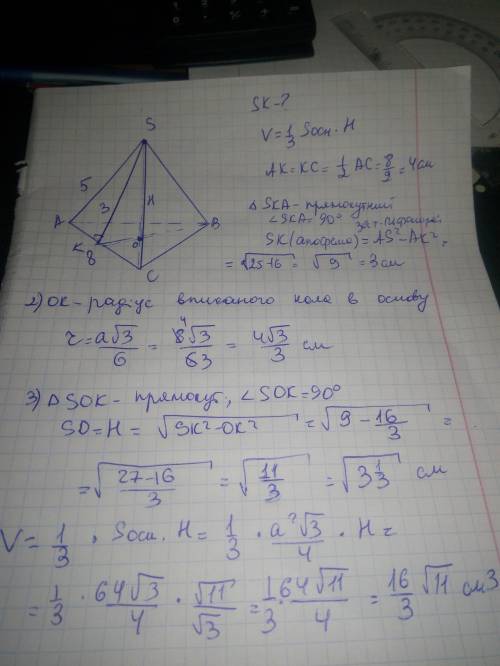 SK-?
V=1/3 Sосн. H
AK=KC=1/2 AC=8/2=4см
△SKA-прямокутний
∠SKA=90° за т. Піфагора
SK(апофема)=AS²-AK²=
=√25-16=√9=3см
S
5
3
H
A
B
K
8
O
C
2) OK-радіус вписаного кола в основу
r=a√3/6=8√3/63 4=4√3/3 см
3) △SOK-прямокут, ∠SOK=90°
SO=H=√SK²-OK²=√9-16/3=
=√27-16/3=√11/3=√3 1/3 см
V=1/3 · Sосн. H=1/3 · a²√3/4 · H=
=1/3 · 64√3/4 · √11/√3=1/3 · 64√11/4=16/3 √11 см³